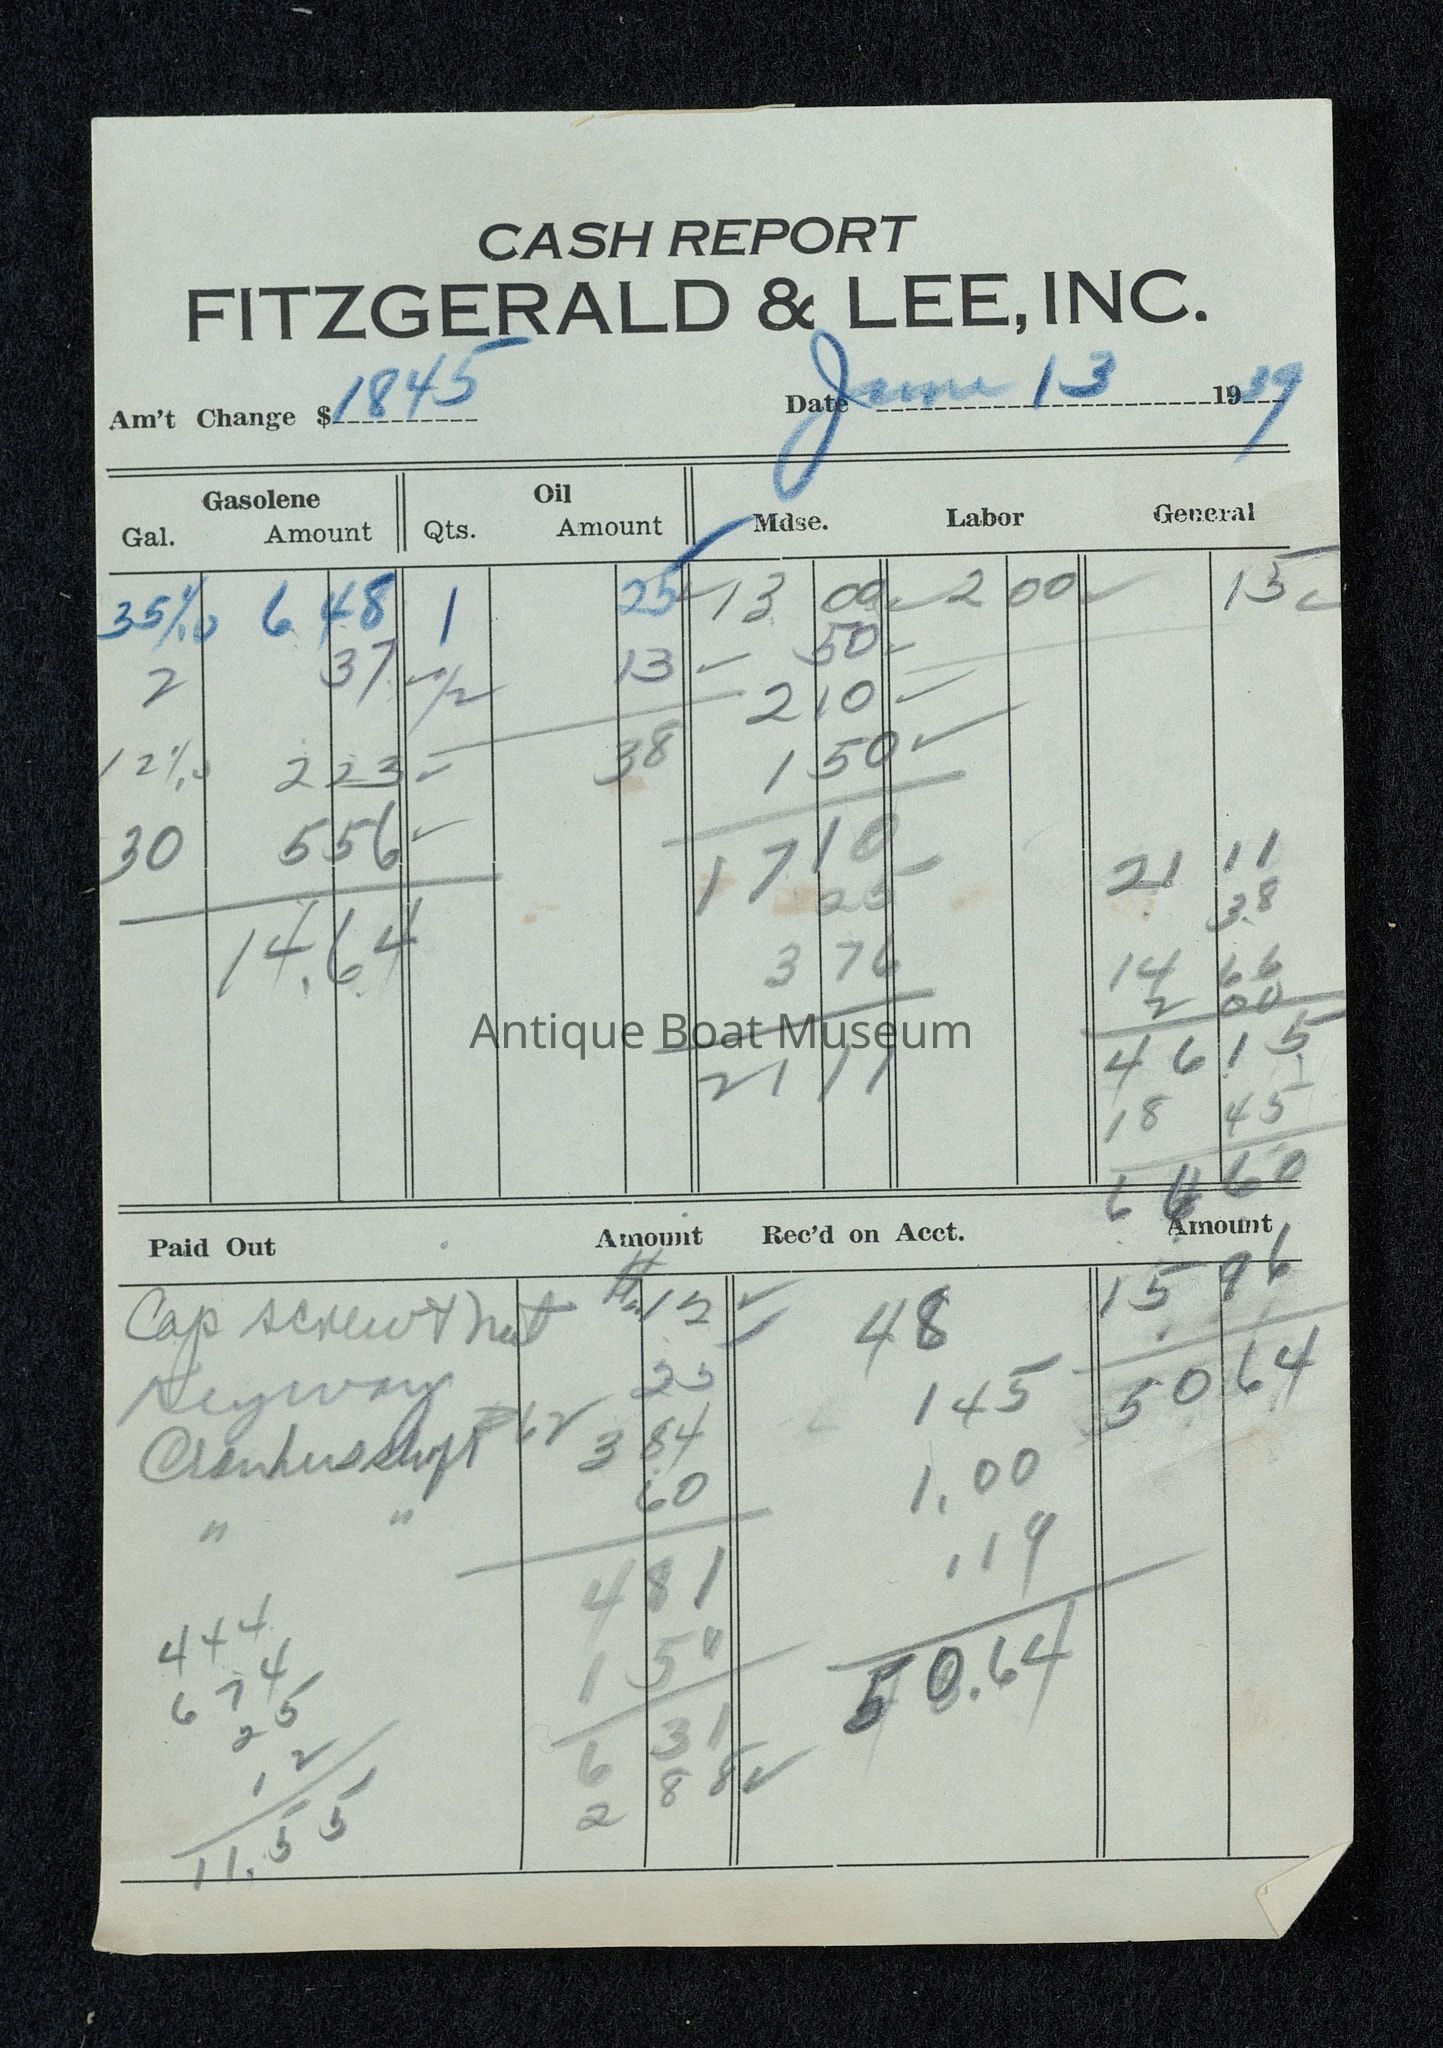 CASH REPORT
FITZGERALD & LEE, INC.
Am't Change $ 1845 Date June 13 1939
Gasolene Oil
Gal. Amount Qts. Amount Mdse. Labor General
6 48 1 25 13 00 2 00 15
2 37 1/2 13 50
2 10
2 23 38 1 50
30 5 56
17 10
14.64 25 21 11
38
3 76 14 66
2 00
Antique Boat Museum
21 11 46 15
18 45
66 60
Paid Out Amount Rec'd on Acct. Amount
Cap screw & nut 12 48 15 96
25 145 50 64
3 84
60 1.00
" " .19
4 81
444 1 50 50.64
674
25 6 31
12 2 88
11.55